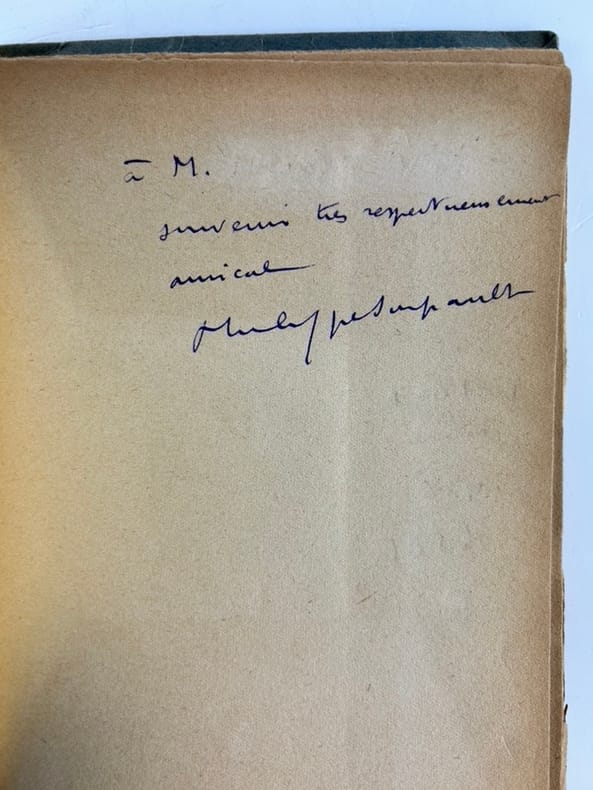 à M.
souvenir très respectueusement
amical
Philippe Soupault